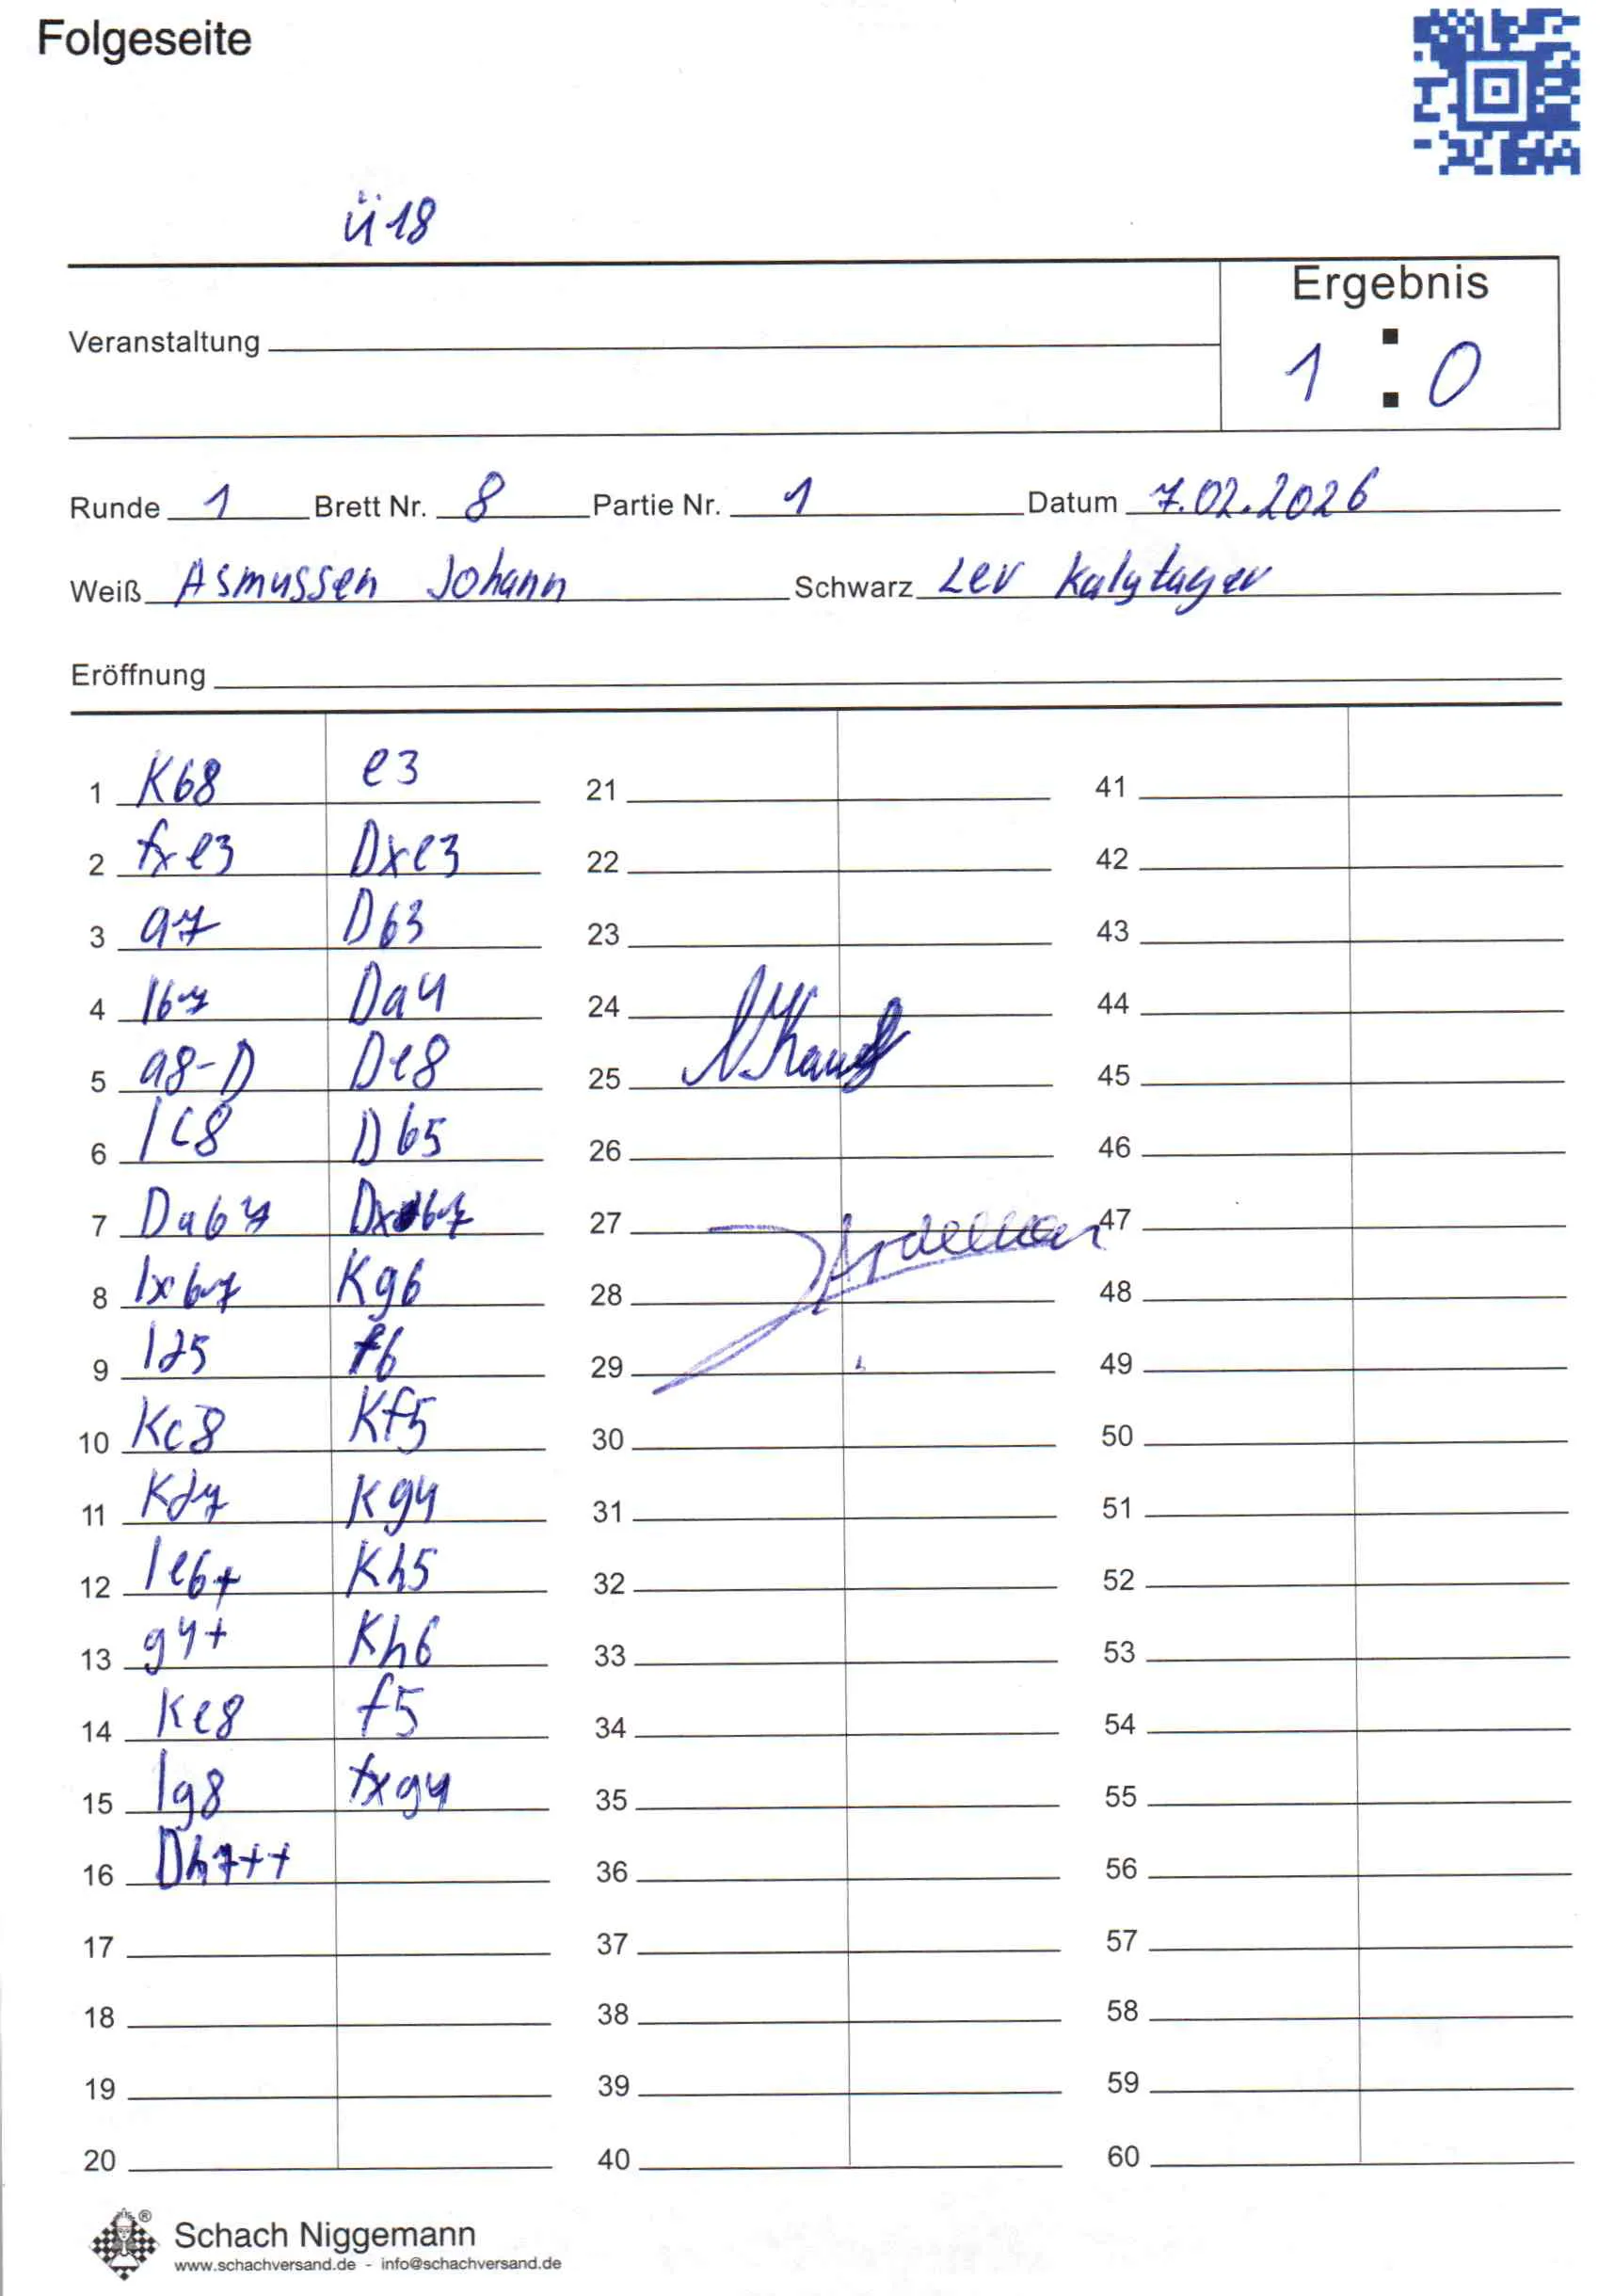 Folgeseite
Ü18
Ergebnis
1 : 0
Veranstaltung
Runde 1 Brett Nr. 8 Partie Nr. 1 Datum 7.02.2026
Weiß Asmussen Johann Schwarz Lev Kalytager
Eröffnung
1 Kb8 e3 21 41
2 fxe3 Dxe3 22 42
3 a7 Db3 23 43
4 lb7 Da4 24 44
5 a8-D De8 25 45
6 lc8 Db5 26 46
7 Dab7 Dxb7 27 47
8 lxb7 Kg6 28 48
9 ld5 f6 29 49
10 Kc8 Kf5 30 50
11 Kd7 Kg4 31 51
12 le6+ Kh5 32 52
13 g4+ Kh6 33 53
14 Ke8 f5 34 54
15 lg8 fxg4 35 55
16 Dh7++ 36 56
17 37 57
18 38 58
19 39 59
20 40 60
Schach Niggemann
www.schachversand.de - info@schachversand.de